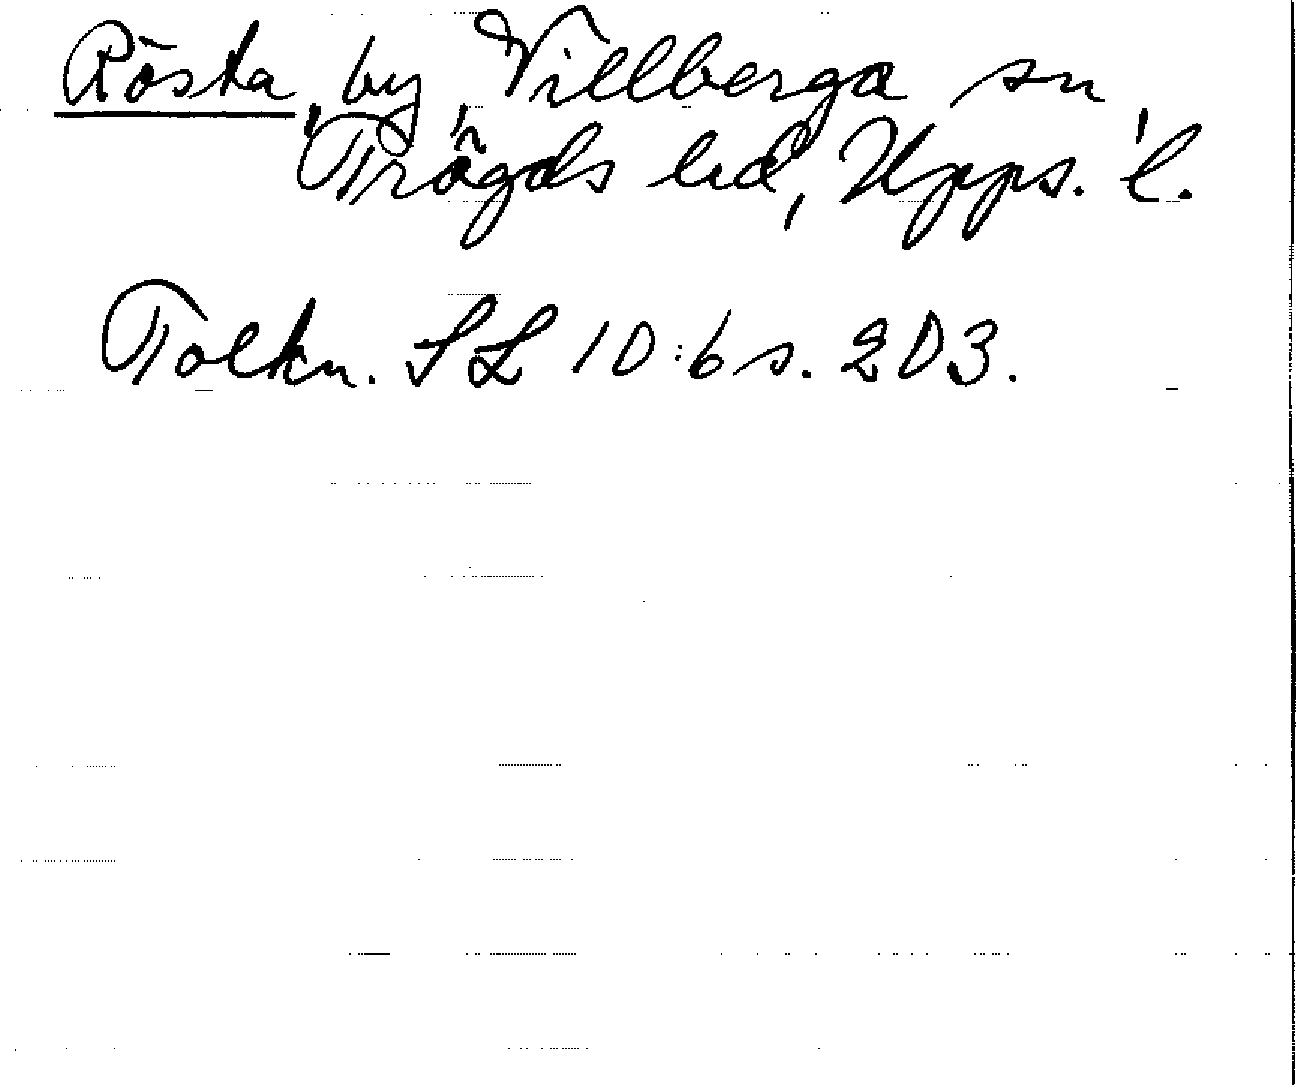 Rösta, by, Villberga sn,
Trögds hd, Upps. l.
Tolkn. SL 10:6 s. 203.